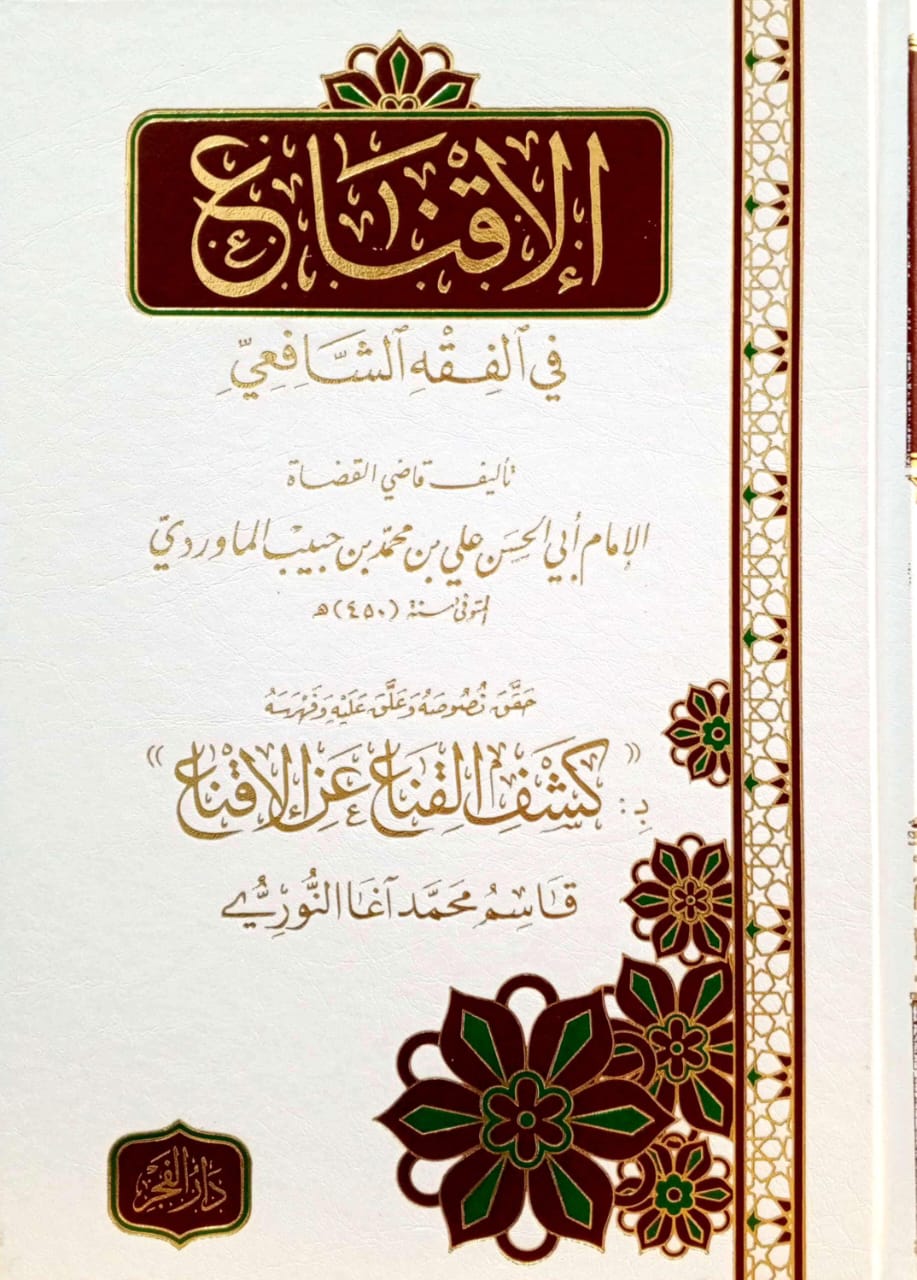 الإقناع
في ٱلفِقْهِ ٱلشَّافِعِيِّ
تأليف قاضي القضاة
الإمام أبي الحسَن علي بن محمّد بن حبيب الماورديّ
المتوفى سنة (٤٥٠) هـ
حَقَّقَ نُصُوصَهُ وَعَلَّقَ عَلَيْهِ وَفَهْرَسَهُ
بِـ: « كَشْفِ القِنَاعِ عَنِ الإِقْنَاعِ »
قَاسِمُ مُحَمَّد آغَا النُّورِيُّ
دَارُ الفَجْرِ